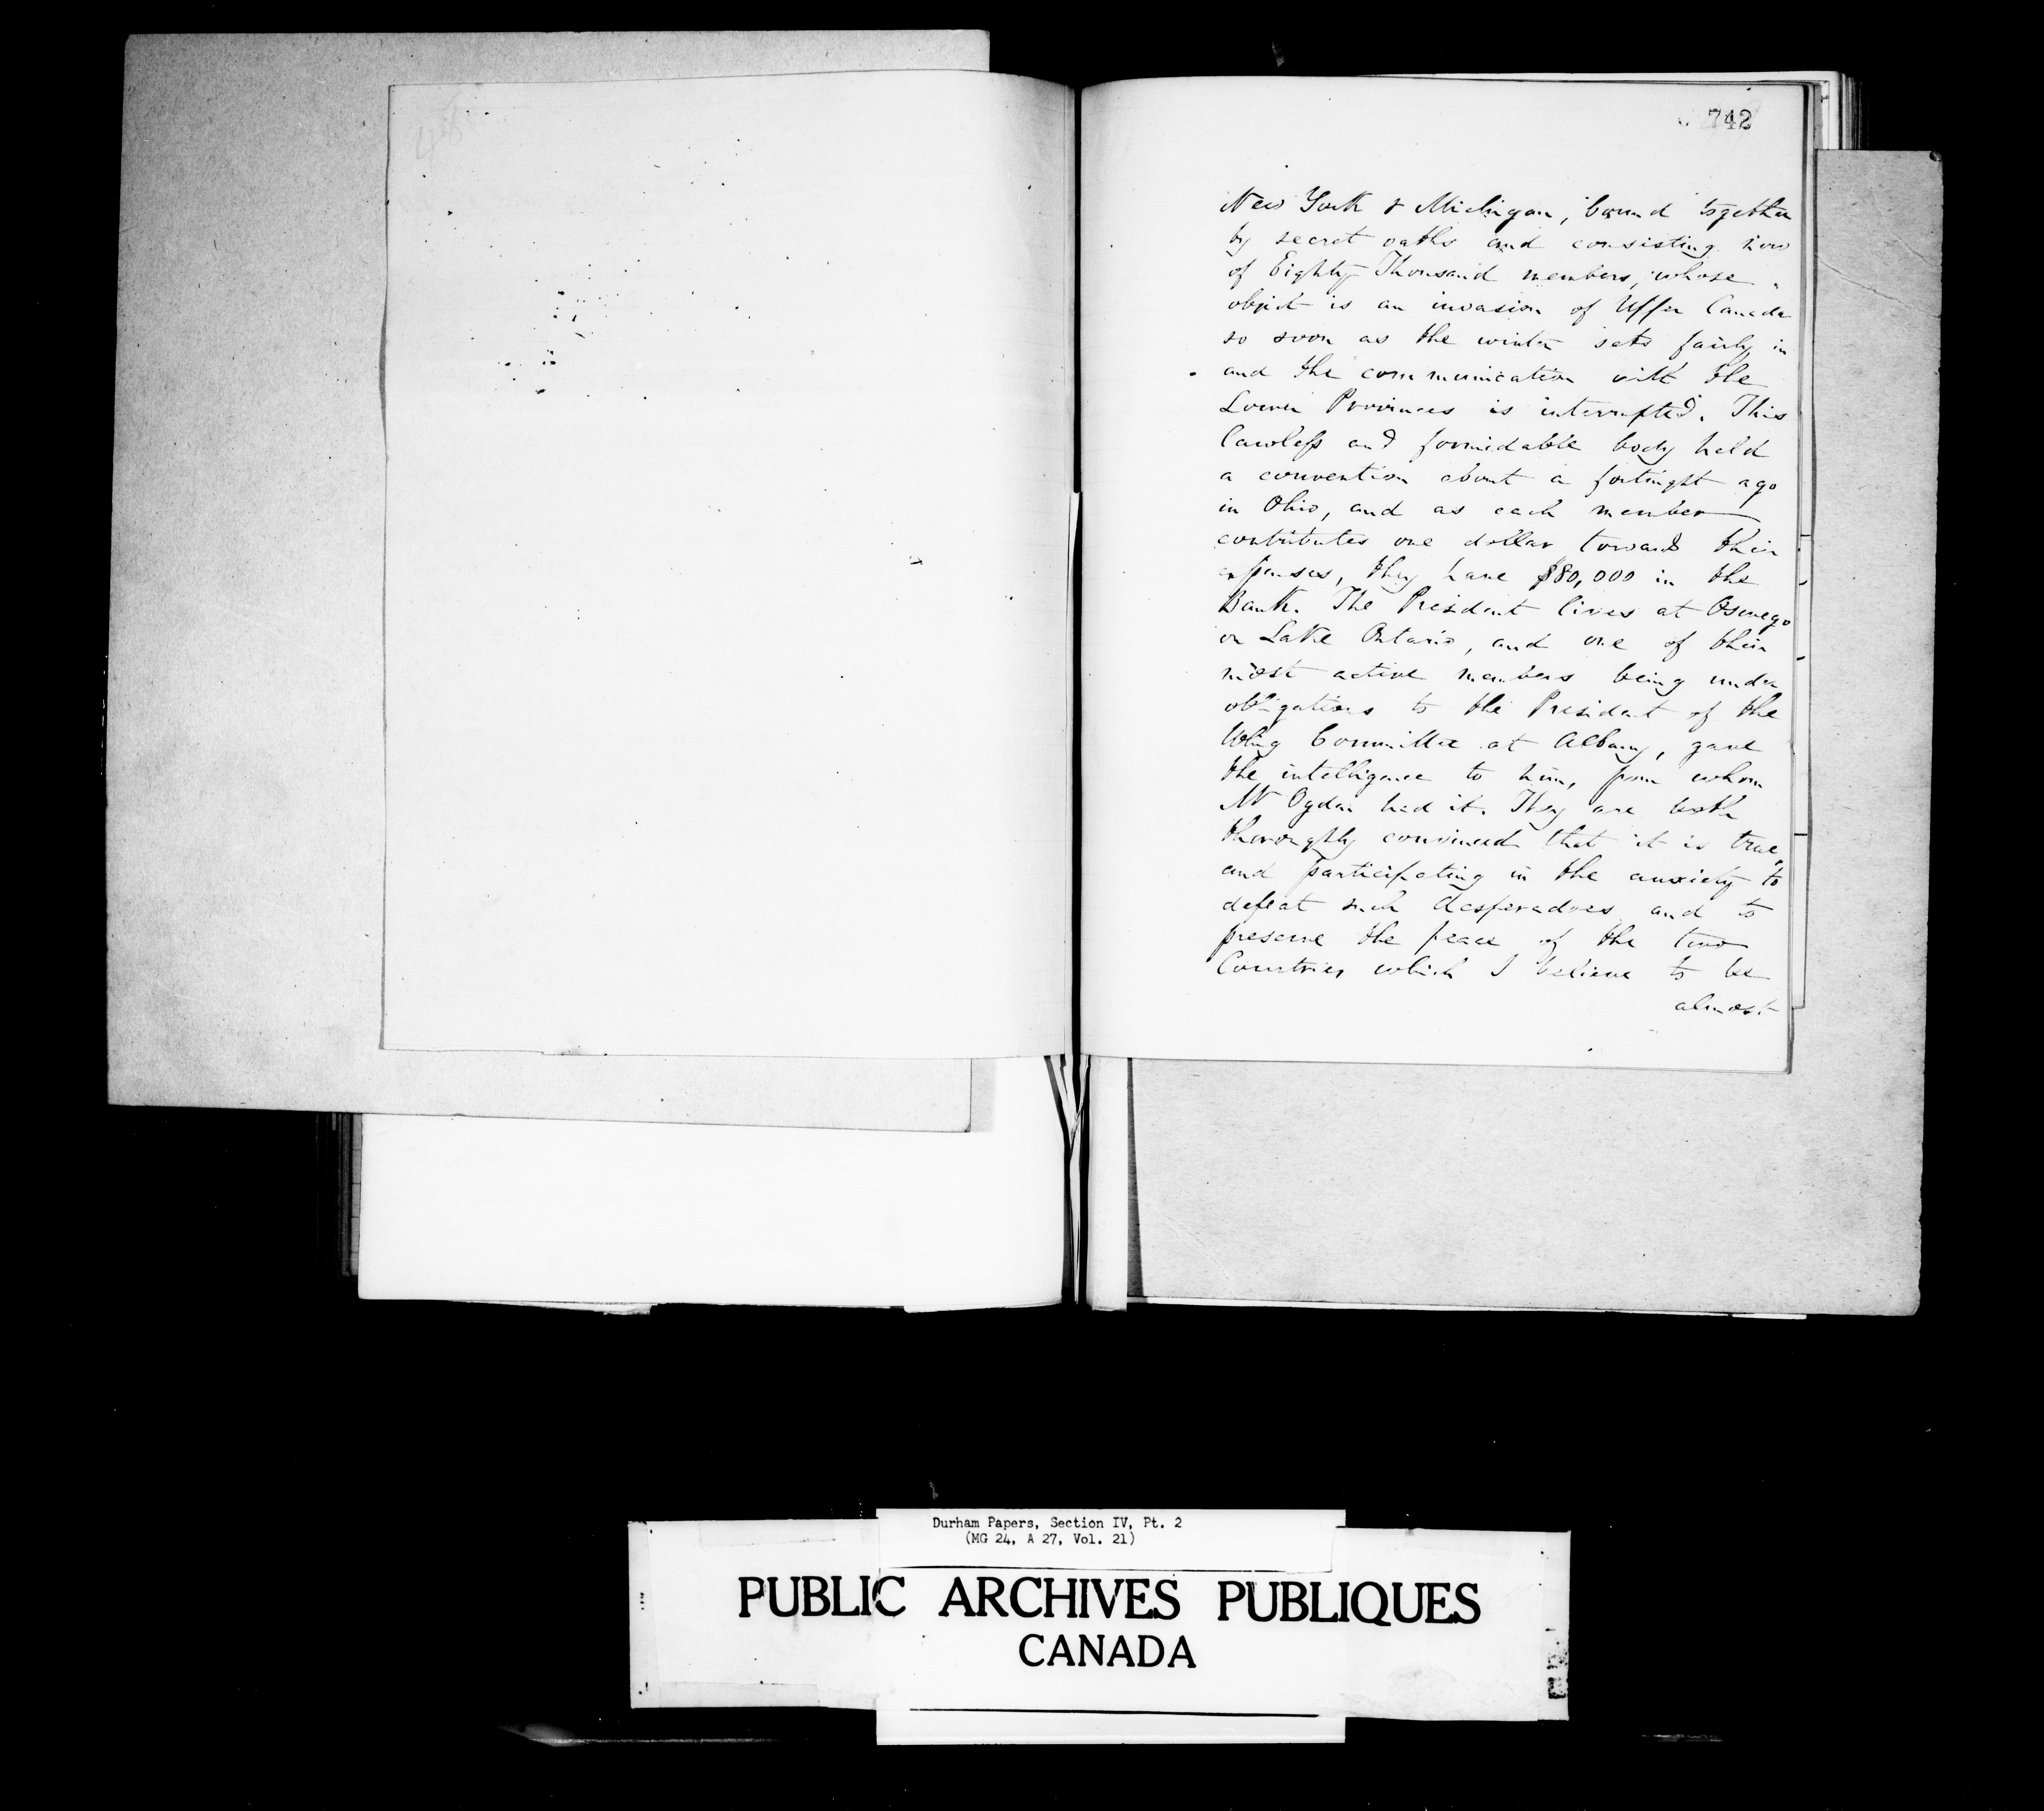 742
New York & Michigan, bound together
by secret oaths and consisting now
of Eighty Thousand members, whose
object is an invasion of Upper Canada
so soon as the winter sets fairly in
and the communication with the
Lower Provinces is interrupted. This
lawless and formidable body held
a convention about a fortnight ago
in Ohio, and as each member
contributes one dollar towards their
expenses, they have $80,000 in the
Bank. The President lives at Oswego
on Lake Ontario, and one of their
most active members being under
obligations to the President of the
Whig Committee at Albany, gave
the intelligence to him, from whom
Mr Ogden had it. They are both
thoroughly convinced that it is true,
and participating in the anxiety to
defeat such desperadoes and to
preserve the peace of the two
Countries which I believe to be
almost
Durham Papers, Section IV, Pt. 2
(MG 24, A 27, Vol. 21)
PUBLIC ARCHIVES PUBLIQUES
CANADA